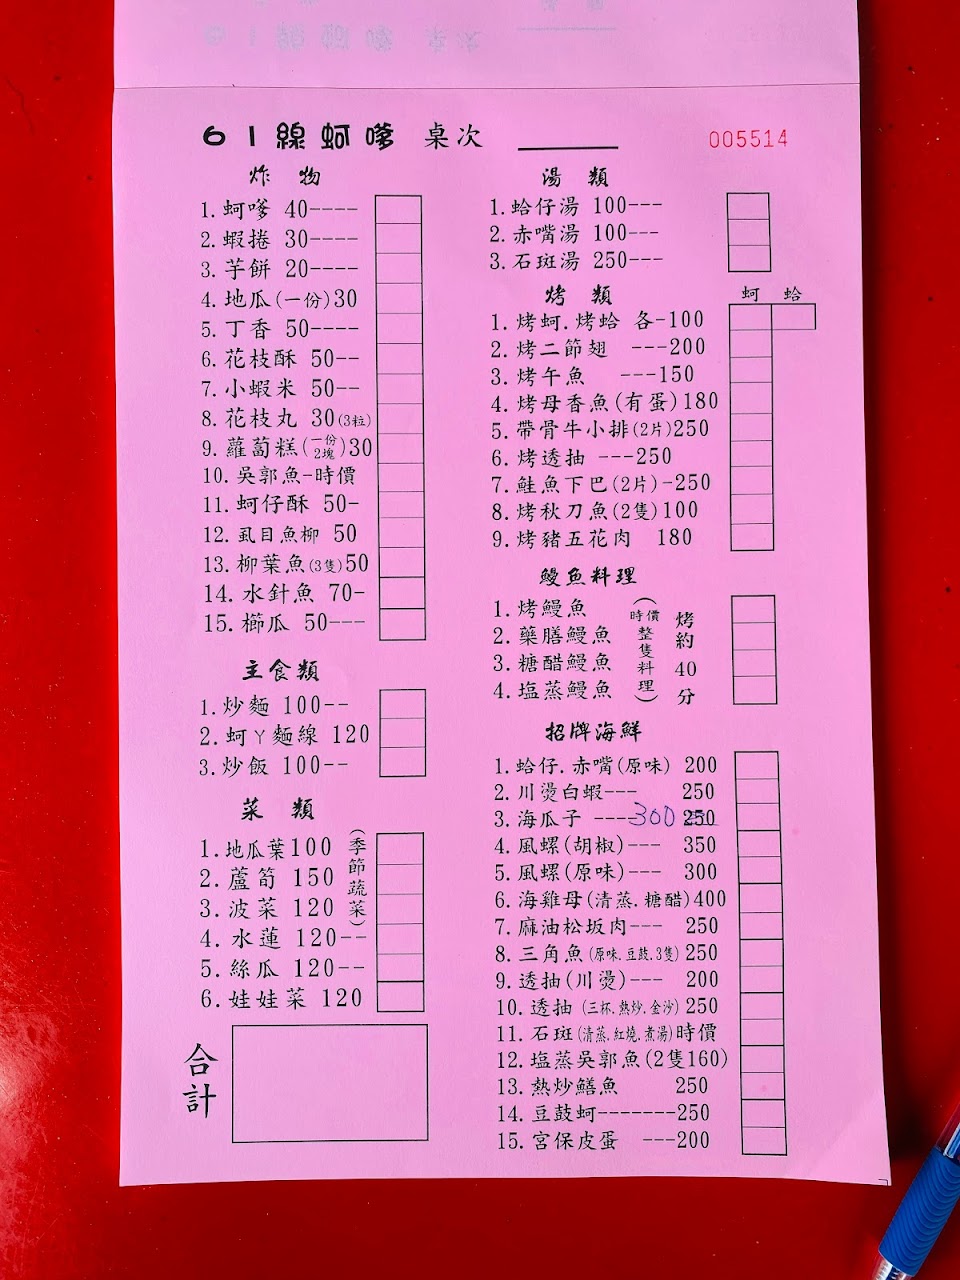 61線蚵嗲 桌次
005514
炸物
1.蚵嗲 40----
2.蝦捲 30----
3.芋餅 20----
4.地瓜(一份)30
5.丁香 50----
6.花枝酥 50--
7.小蝦米 50--
8.花枝丸 30(3粒)
9.蘿蔔糕(一份2塊)30
10.吳郭魚-時價
11.蚵仔酥 50-
12.虱目魚柳 50
13.柳葉魚(3隻)50
14.水針魚 70-
15.櫛瓜 50---
主食類
1.炒麵 100--
2.蚵ㄚ麵線 120
3.炒飯 100--
菜類
(季節蔬菜)
1.地瓜葉100
2.蘆筍 150
3.波菜 120
4.水蓮 120--
5.絲瓜 120--
6.娃娃菜 120
合計
湯類
1.蛤仔湯 100---
2.赤嘴湯 100---
3.石斑湯 250---
烤類
蚵 蛤
1.烤蚵.烤蛤 各-100
2.烤二節翅 ---200
3.烤午魚 ---150
4.烤母香魚(有蛋)180
5.帶骨牛小排(2片)250
6.烤透抽 ---250
7.鮭魚下巴(2片)-250
8.烤秋刀魚(2隻)100
9.烤豬五花肉 180
鰻魚料理
1.烤鰻魚
2.藥膳鰻魚
3.糖醋鰻魚
4.塩蒸鰻魚
(時價整隻料理)
烤約40分
招牌海鮮
1.蛤仔.赤嘴(原味) 200
2.川燙白蝦--- 250
3.海瓜子 ---300 250
4.風螺(胡椒)--- 350
5.風螺(原味)--- 300
6.海雞母(清蒸.糖醋)400
7.麻油松坂肉--- 250
8.三角魚(原味.豆鼓.3隻)250
9.透抽(川燙)--- 200
10.透抽(三杯.熱炒.金沙)250
11.石斑(清蒸.紅燒.煮湯)時價
12.塩蒸吳郭魚(2隻160)
13.熱炒鱔魚 250
14.豆鼓蚵-------250
15.宮保皮蛋 ---200